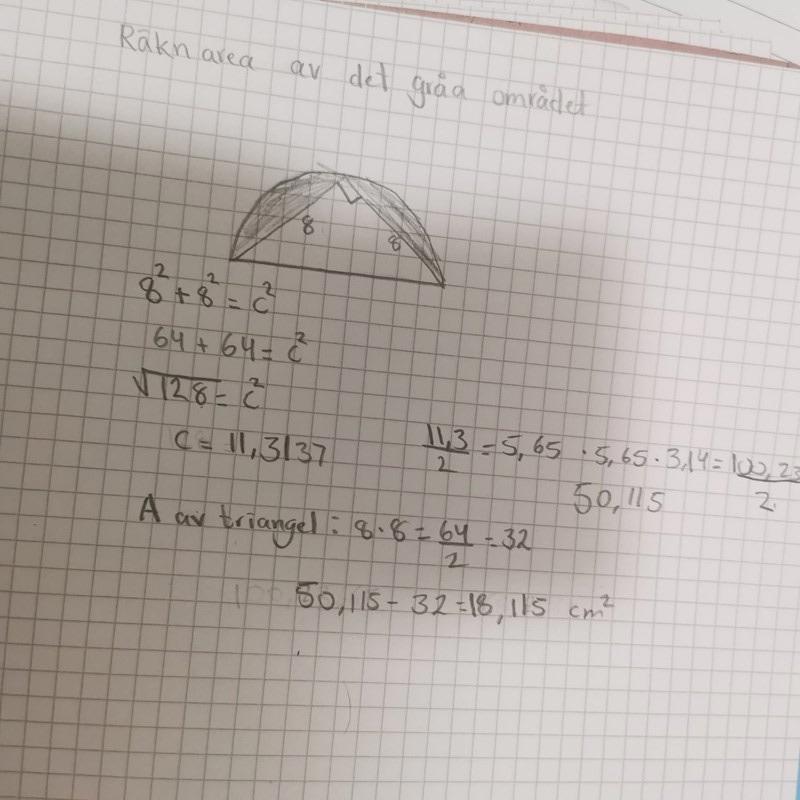 Räkn area av det gråa området
8
8
8² + 8² = c²
64 + 64 = c²
√128 = c²
c = 11,3137
11,3/2 = 5,65 · 5,65 · 3,14 = 100,23/2
50,115
A av triangel: 8·8 = 64/2 = 32
50,115 - 32 = 18,115 cm²